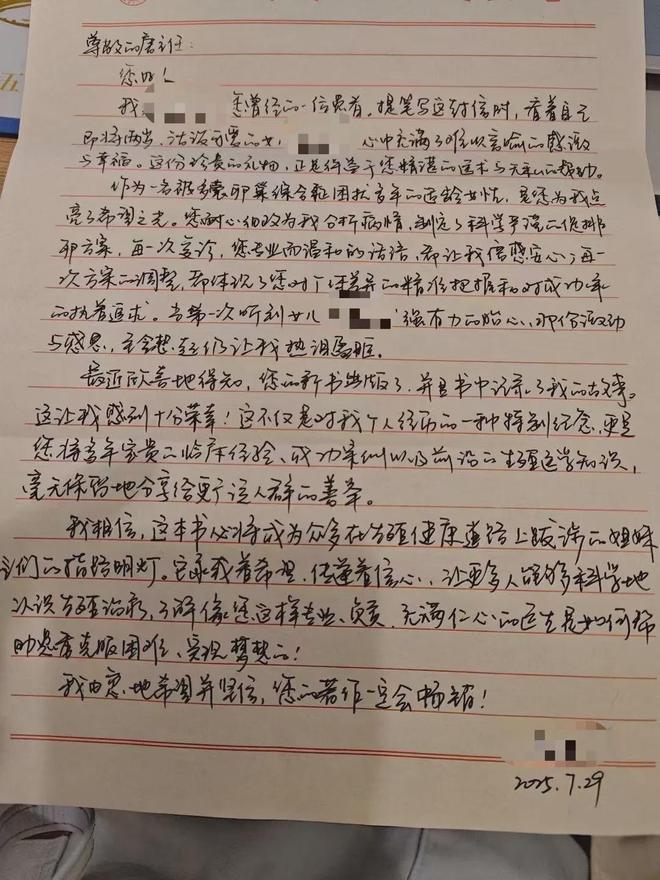 尊敬的唐主任：
您好！
我 您曾经的一位患者。提笔写这封信时，看着自己
即将两岁、活泼可爱的女 心中充满了难以言喻的感激
与幸福。这份珍贵的礼物，正是得益于您精湛的医术与无私的帮助。
作为一名被多囊卵巢综合征困扰多年的适龄女性，是您为我点
亮了希望之光。您耐心细致为我分析病情，制定了科学严谨的促排
卵方案，每一次复诊，您专业而温和的话语，都让我倍感安心；每一
次方案的调整，都体现了您对个体差异的精准把握和对成功率
的执着追求。当第一次听到女儿 强有力的胎心，那份激动
与感恩，至今想起仍让我热泪盈眶。
最近欣喜地得知，您的新书出版了，并且书中记录了我的故事。
这让我感到十分荣幸！这不仅是对我个人经历的一种特别纪念，更是
您将多年宝贵的临床经验、成功案例以及前沿的生殖医学知识，
毫无保留地分享给更广泛人群的善举。
我相信，这本书必将成为众多在生殖健康道路上跋涉的姐妹
们的指路明灯。它承载着希望，传递着信心，让更多人能够科学地
认识生殖治疗，了解像您这样专业、负责、充满仁心的医生是如何帮
助患者克服困难、实现梦想的！
我由衷地希望并坚信，您的著作一定会畅销！
2025.7.29